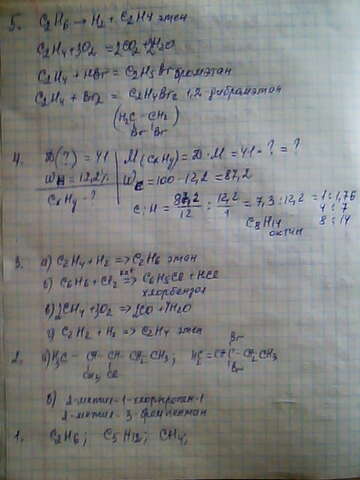 5. C2H6 → H2 + C2H4 этен
C2H4 + 3O2 = 2CO2 + 2H2O
C2H4 + HBr = C2H5Br бромэтан
C2H4 + Br2 = C2H4Br2 1,2-дибромэтан
(H2C - CH2)
Br Br
4. Д(?) = 41
WH = 12,2%
CxHy - ?
M(CxHy) = Д · M = 41 · ? = ?
WC = 100 - 12,2 = 87,2
C : H = 87,2/12 : 12,2/1 = 7,3 : 12,2 = 1 : 1,75
4 : 7
C8H14 8 : 14
октин
3. а) C2H4 + H2 => C2H6 этан
б) C6H6 + Cl2 => C6H5Cl + HCl
хлорбензол
в) 2CH4 + 3O2 => 2CO + 4H2O
г) C2H2 + H2 => C2H4 этен
2. а) H3C - CH - CH - CH2 - CH3 ;
CH3 Cl
Br
C - CH2 - CH3
Br
б) 2-метил-1-хлорпропен-1
2-метил-3-бромпентан
1. C2H6 ; C5H12 ; CH4 ;